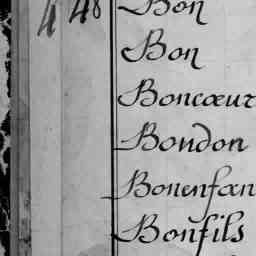 4 48 Bon
Bon
Boncœur
Bondon
Bonenfan
Bonfils